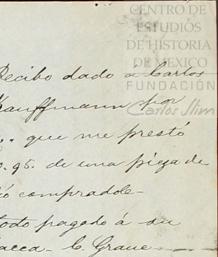 CENTRO DE
ESTUDIOS
DE HISTORIA
DE MÉXICO
FUNDACIÓN
Carlos Slim
Recibo dado a Carlos
Kauffmann por
" que me prestó
0.95. de una pieza de
comprado
todo pagado á su